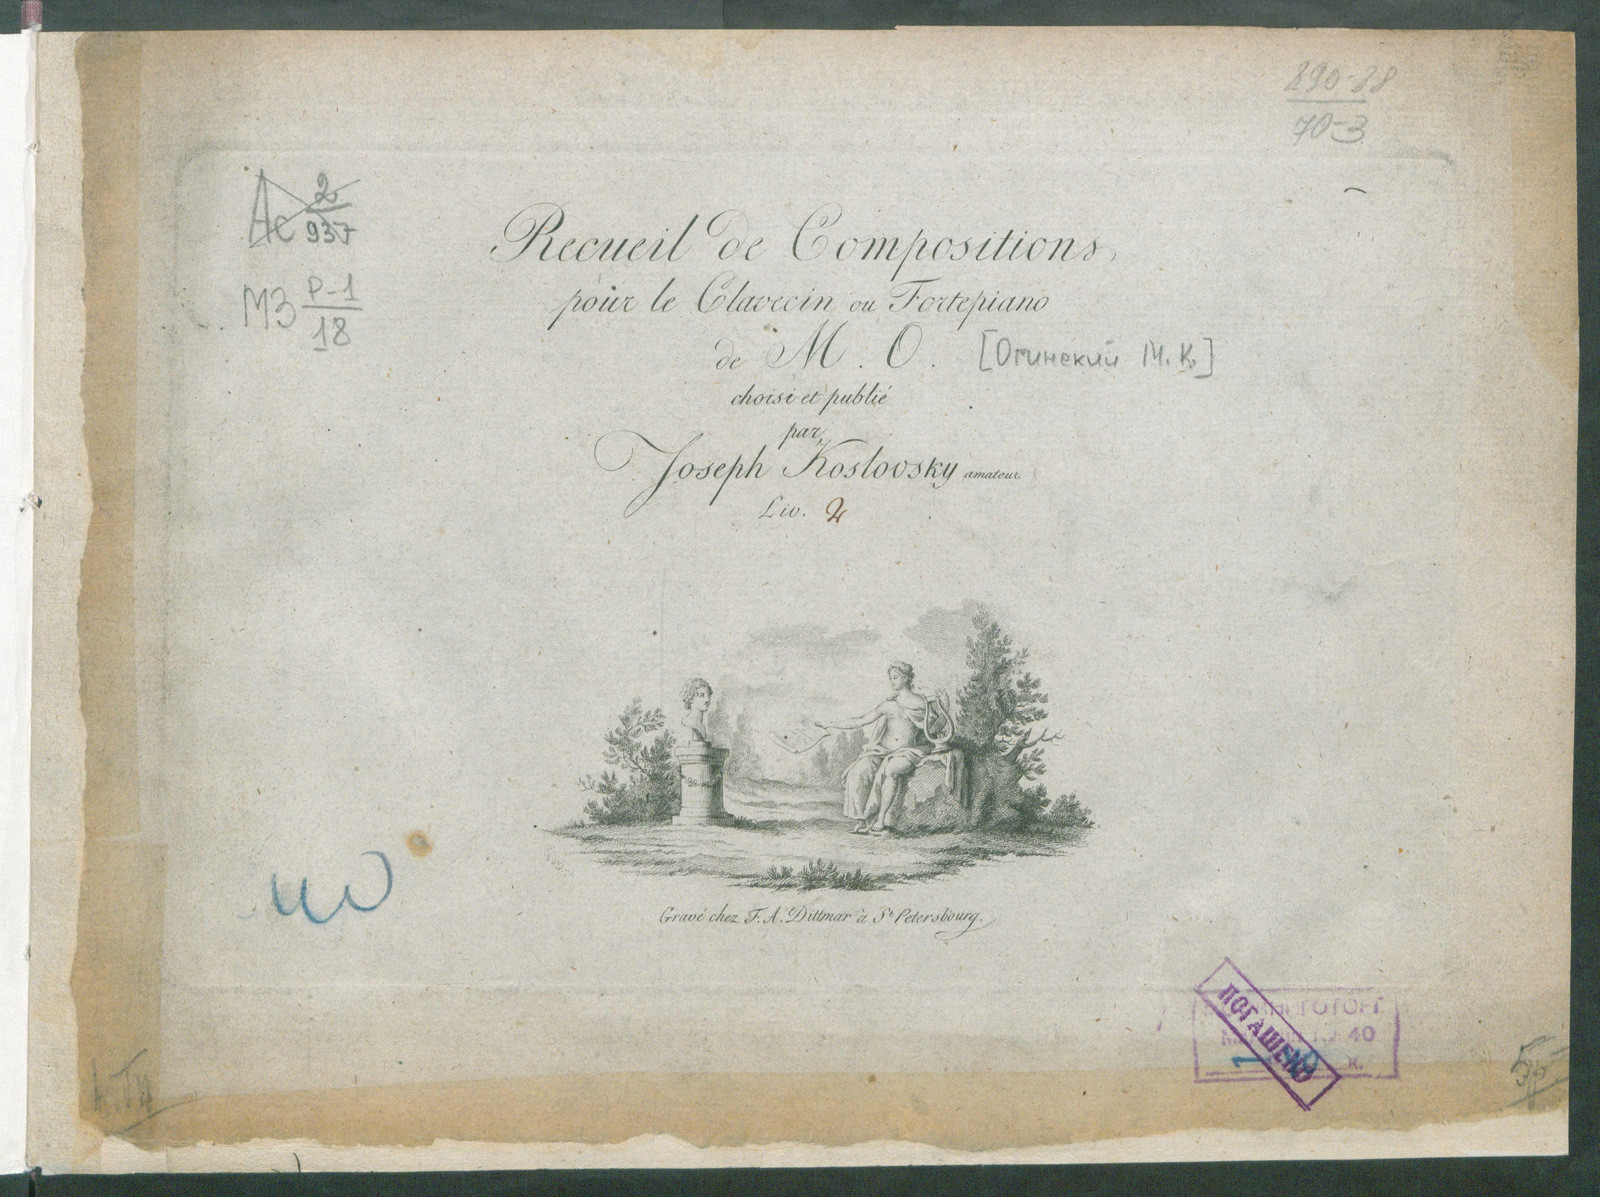 890-88
70-3
Ас 2
937
МЗ Р-1
18
Recueil de Compositions,
pour le Clavecin ou Fortepiano
de M. O. [Огинский М. К.]
choisi et publié
par
Joseph Koslovsky amateur
Liv. 2
Gravé chez F. A. Dittmar à St. Petersbourg.
ПОГАШЕНО
40
к.
5р